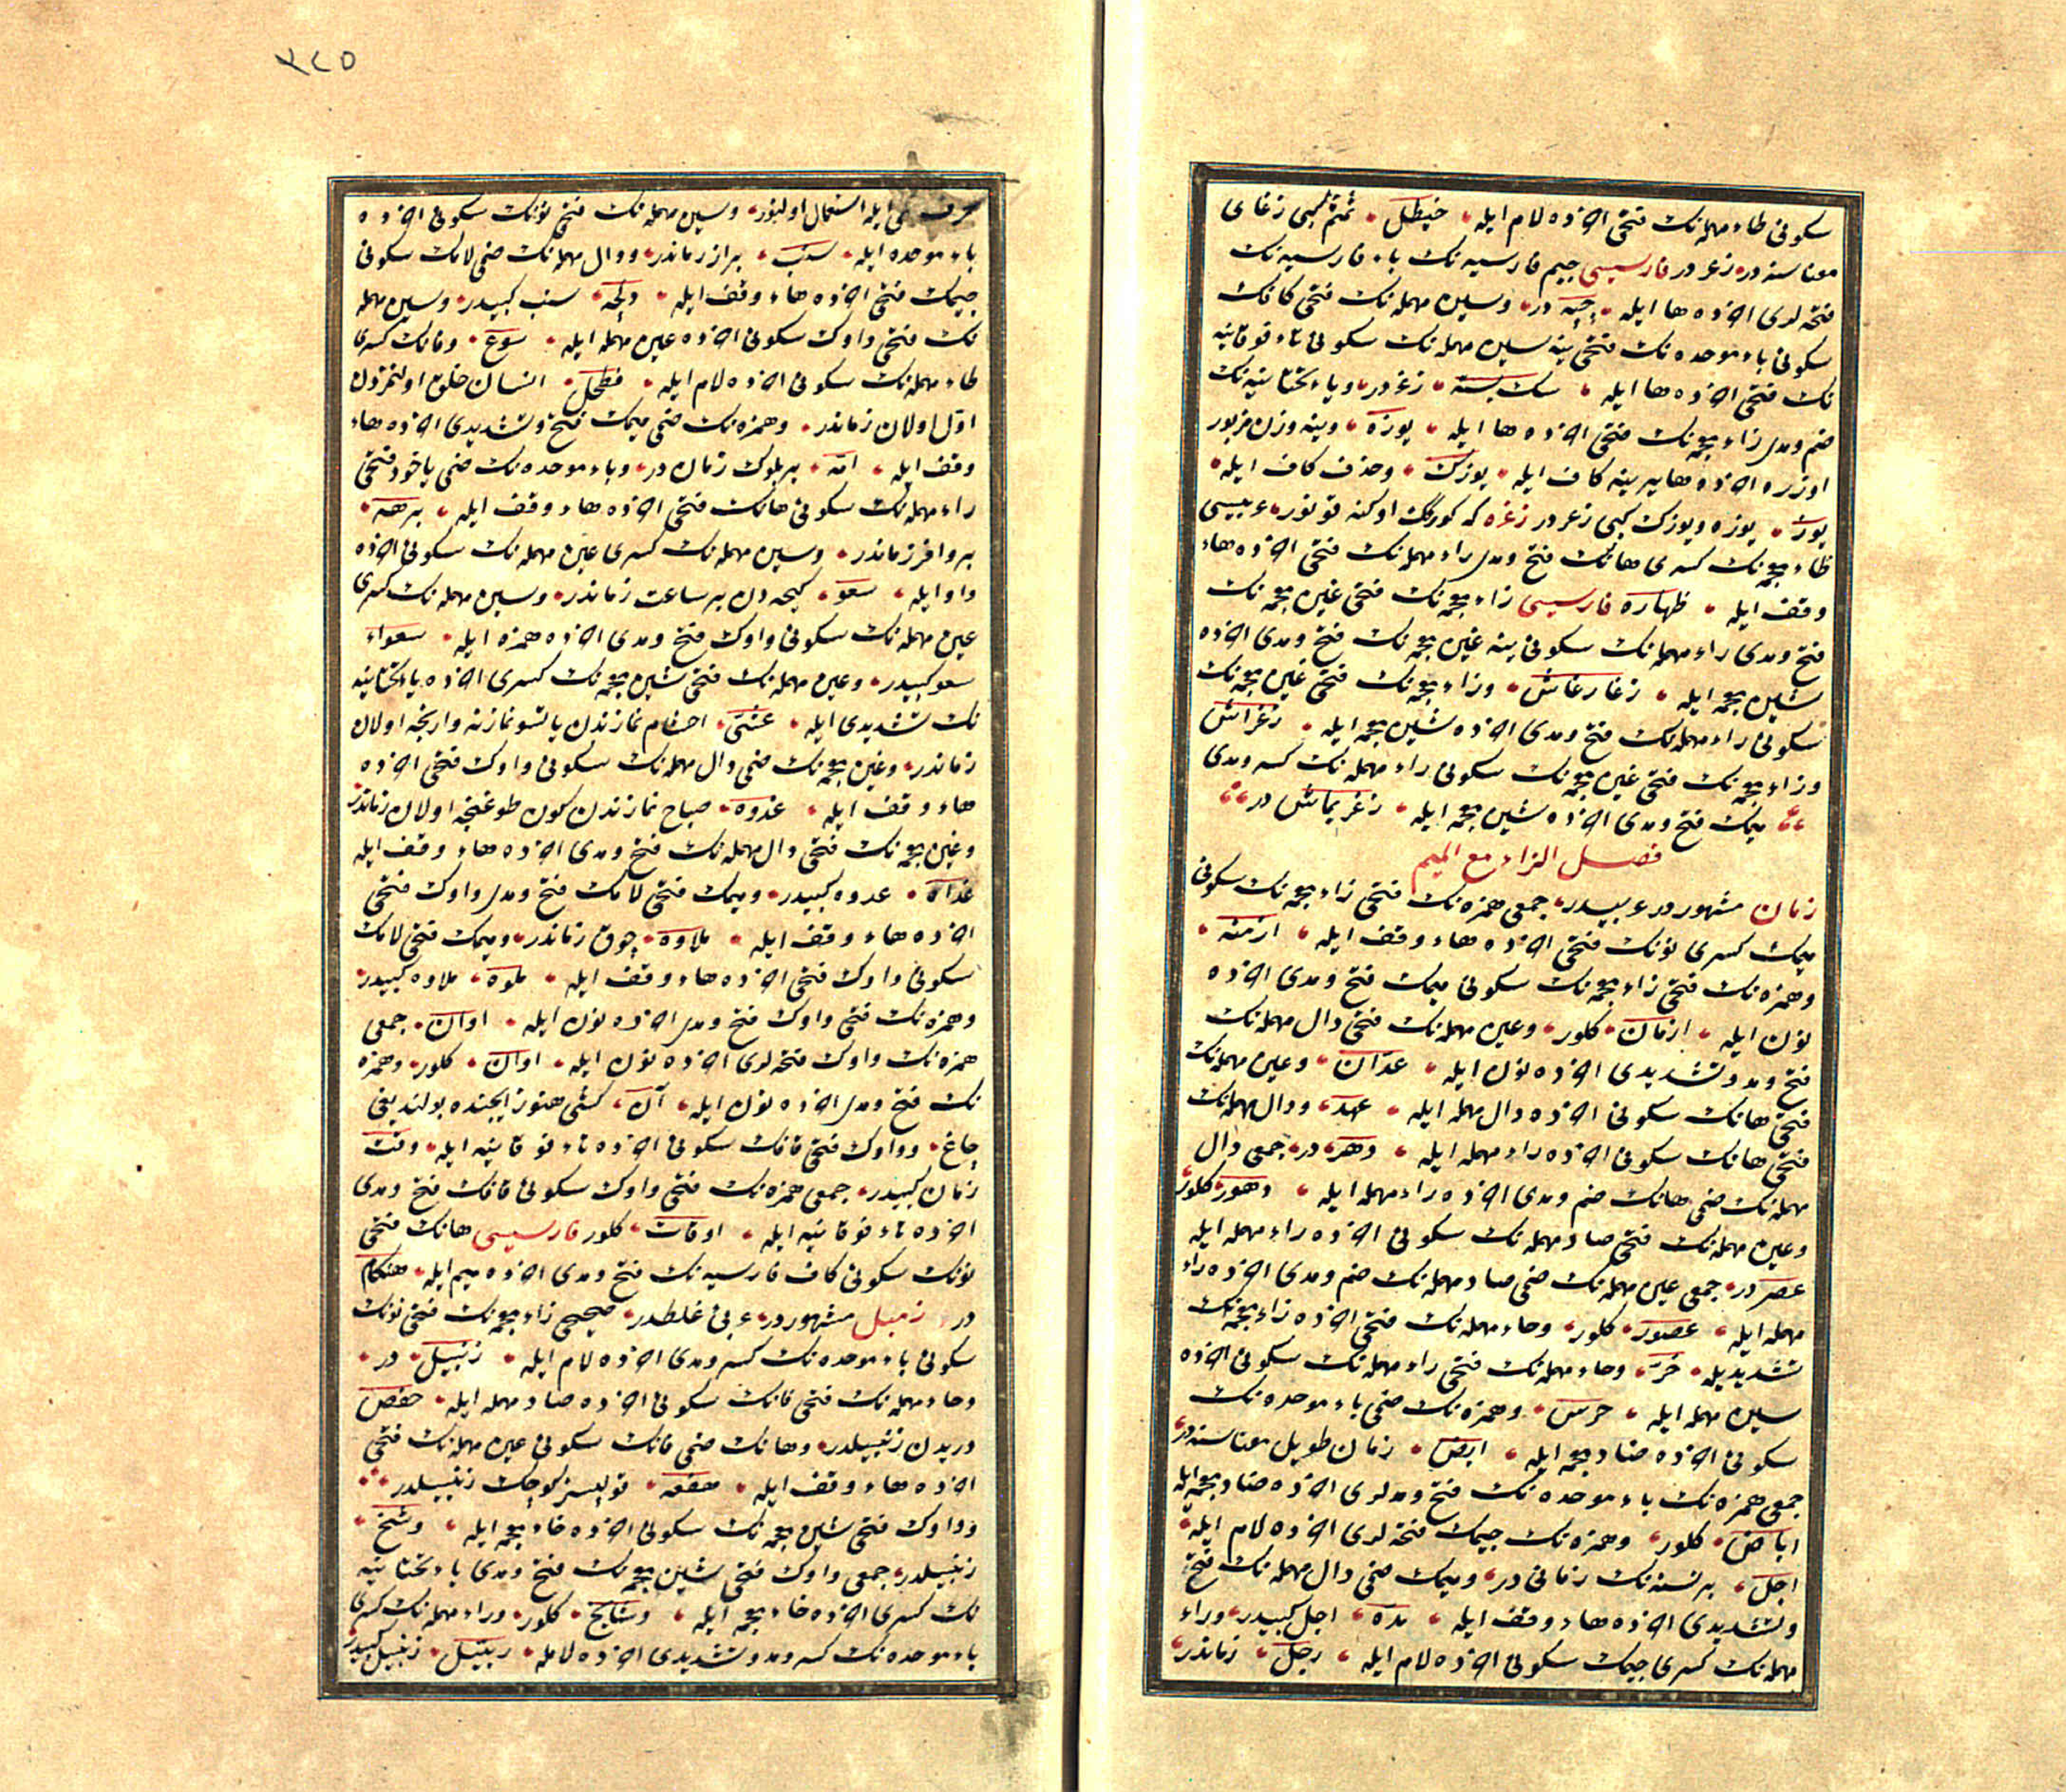 سكونی طاء مهمله‌نك فتحی آخرده لام ایله، خیطل، ثمثم كبی زغای
معناسنه در، زغر در فارسیسی جیم فارسیه نك باء فارسیه نك
فتحه لری آخرده ها ایله، چپه در، وسین مهمله نك فتحی كافك
سكونی باء موحده نك فتحی ینه سین مهمله نك سكونی تاء فوقانیه
نك فتحی آخرده ها ایله، سك بسته، زغر در، ویاء تحتانیه نك
ضم ومدی زاء معجمه نك فتحی آخرده ها ایله، یوزه، وینه وزن مزبور
اوزره آخرده ها یرینه كاف ایله، یوزك، وحذف كاف ایله،
یوز، یوزه ویوزك كبی زغر در زغره كه كورك اوكنه قونور، عربیسی
ظاء معجمه نك كسری هانك فتح ومدی راء مهمله نك فتحی آخرده هاء
وقف ایله، ظهاره فارسیسی زاء معجمه نك فتحی غین معجمه نك
فتح ومدی راء مهمله نك سكونی ینه غین معجمه نك فتح ومدی آخرده
شین معجمه ایله، زغارغاش، وزاء معجمه نك فتحی غین معجمه نك
سكونی راء مهمله نك فتح ومدی آخرده شین معجمه ایله، زغراش
وزاء معجمه نك فتحی غین معجمه نك سكونی راء مهمله نك كسر ومدی
میمك فتح ومدی آخرده شین معجمه ایله، زغریماش در
فصل الزاء مع المیم
زمان مشهور در عربیدر، جمعی همزه نك فتحی زاء معجمه نك سكونی
میمك كسری نونك فتحی آخرده هاء وقف ایله، ازمنه،
وهمزه نك فتحی زاء معجمه نك سكونی میمك فتح ومدی آخرده
نون ایله، ازمان، كلور، وعین مهمله نك فتحی دال مهمله نك
فتح ومد وتشدیدی آخرده نون ایله، عدان، وعین مهمله نك
فتحی هانك سكونی آخرده دال مهمله ایله، عهد، ودال مهمله نك
فتحی هانك سكونی آخرده راء مهمله ایله، دهر، در، جمعی دال
مهمله نك ضمی هانك ضم ومدی آخرده راء مهمله ایله، دهور، كلور،
وعین مهمله نك فتحی صاد مهمله نك سكونی آخرده راء مهمله ایله
عصر در، جمعی عین مهمله نك ضمی صاد مهمله نك ضم ومدی آخرده راء
مهمله ایله، عصور، كلور، وحاء مهمله نك فتحی آخرده زاء معجمه نك
تشدیدیله، حز، وحاء مهمله نك فتحی راء مهمله نك سكونی آخرده
سین مهمله ایله، حرس، وهمزه نك ضمی باء موحده نك
سكونی آخرده ضاد معجمه ایله، ابض، زمان طویل معناسنه در،
جمعی همزه نك باء موحده نك فتح ومدلری آخرده ضاد معجمه ایله
اباض، كلور، وهمزه نك جیمك فتحه لری آخرده لام ایله،
اجل، بر نسنه نك زمانی در، ومیمك ضمی دال مهمله نك فتح
وتشدیدی آخرده هاء وقف ایله، مده، اجل كبیدر، وراء
مهمله نك كسری جیمك سكونی آخرده لام ایله، رجل، زماندر،
٣٢٥
حرف فی ایله استعمال اولنور، وسین مهمله نك فتحی نونك سكونی آخرده
باء موحده ایله، سنب، براز زماندر، ودال مهمله نك ضمی لامك سكونی
جیمك فتحی آخرده هاء وقف ایله، دلجه، سنب كبیدر، وسین مهمله
نك فتحی واوك سكونی آخرده عین مهمله ایله، سوع، وفانك كسری
طاء مهمله نك سكونی آخرده لام ایله، فطحل، انسان خلق اولنمزدن
اول اولان زماندر، وهمزه نك ضمی میمك فتح وتشدیدی آخرده هاء
وقف ایله، امه، بر بلوك زمان در، وباء موحده نك ضمی یاخود فتحی
راء مهمله نك سكونی هانك فتحی آخرده هاء وقف ایله، برهه،
بر وافر زماندر، وسین مهمله نك كسری عین مهمله نك سكونی آخرده
واو ایله، سعو، كیجه دن بر ساعت زماندر، وسین مهمله نك كسری
عین مهمله نك سكونی واوك فتح ومدی آخرده همزه ایله، سعواء
سعو كبیدر، وعین مهمله نك فتحی شین معجمه نك كسری آخرده یاء تحتانیه
نك تشدیدی ایله، عشی، اخشام نمازندن یاتسو نمازنه وارنجه اولان
زماندر، وغین معجمه نك ضمی دال مهمله نك سكونی واوك فتحی آخرده
هاء وقف ایله، غدوه، صباح نمازندن كون طوغنجه اولان زماندر
وغین معجمه نك فتحی دال مهمله نك فتح ومدی آخرده هاء وقف ایله
غداه، غدوه كبیدر، ومیمك فتحی لامك فتح ومدی واوك فتحی
آخرده هاء وقف ایله، ملاوه، چوق زماندر، ومیمك فتحی لامك
سكونی واوك فتحی آخرده هاء وقف ایله، ملوه، ملاوه كبیدر،
وهمزه نك فتحی واوك فتح ومدی آخرده نون ایله، اوان، جمعی
همزه نك واوك فتحه لری آخرده نون ایله، اوان، كلور، وهمزه
نك فتح ومدی آخرده نون ایله، آن، كشی هنوز ایچنده بولندیغی
چاغ، وواوك فتحی قافك سكونی آخرده تاء فوقانیه ایله، وقت
زمان كبیدر، جمعی همزه نك فتحی واوك سكونی قافك فتح ومدی
آخرده تاء فوقانیه ایله، اوقات، كلور فارسیسی هانك فتحی
نونك سكونی كاف فارسیه نك فتح ومدی آخرده میم ایله، هنكام
در، زمبیل مشهور در، عربی غلطدر، صحیحی زاء معجمه نك فتحی نونك
سكونی باء موحده نك كسر ومدی آخرده لام ایله، زنبیل، در،
وحاء مهمله نك فتحی فانك سكونی آخرده صاد مهمله ایله، حفص
دریدن زنبیلدر، وهانك ضمی فانك سكونی عین مهمله نك فتحی
آخرده هاء وقف ایله، هفعه، قولپسز كوچك زنبیلدر
وواوك فتحی شین معجمه نك سكونی آخرده خاء معجمه ایله، وشخ،
زنبیلدر، جمعی واوك فتحی شین معجمه نك فتح ومدی یاء تحتانیه
نك كسری آخرده خاء معجمه ایله، وشایخ، كلور، وراء مهمله نك كسری
باء موحده نك كسر ومد وتشدیدی آخرده لامله، ربیل، زنبیل كبیدر،